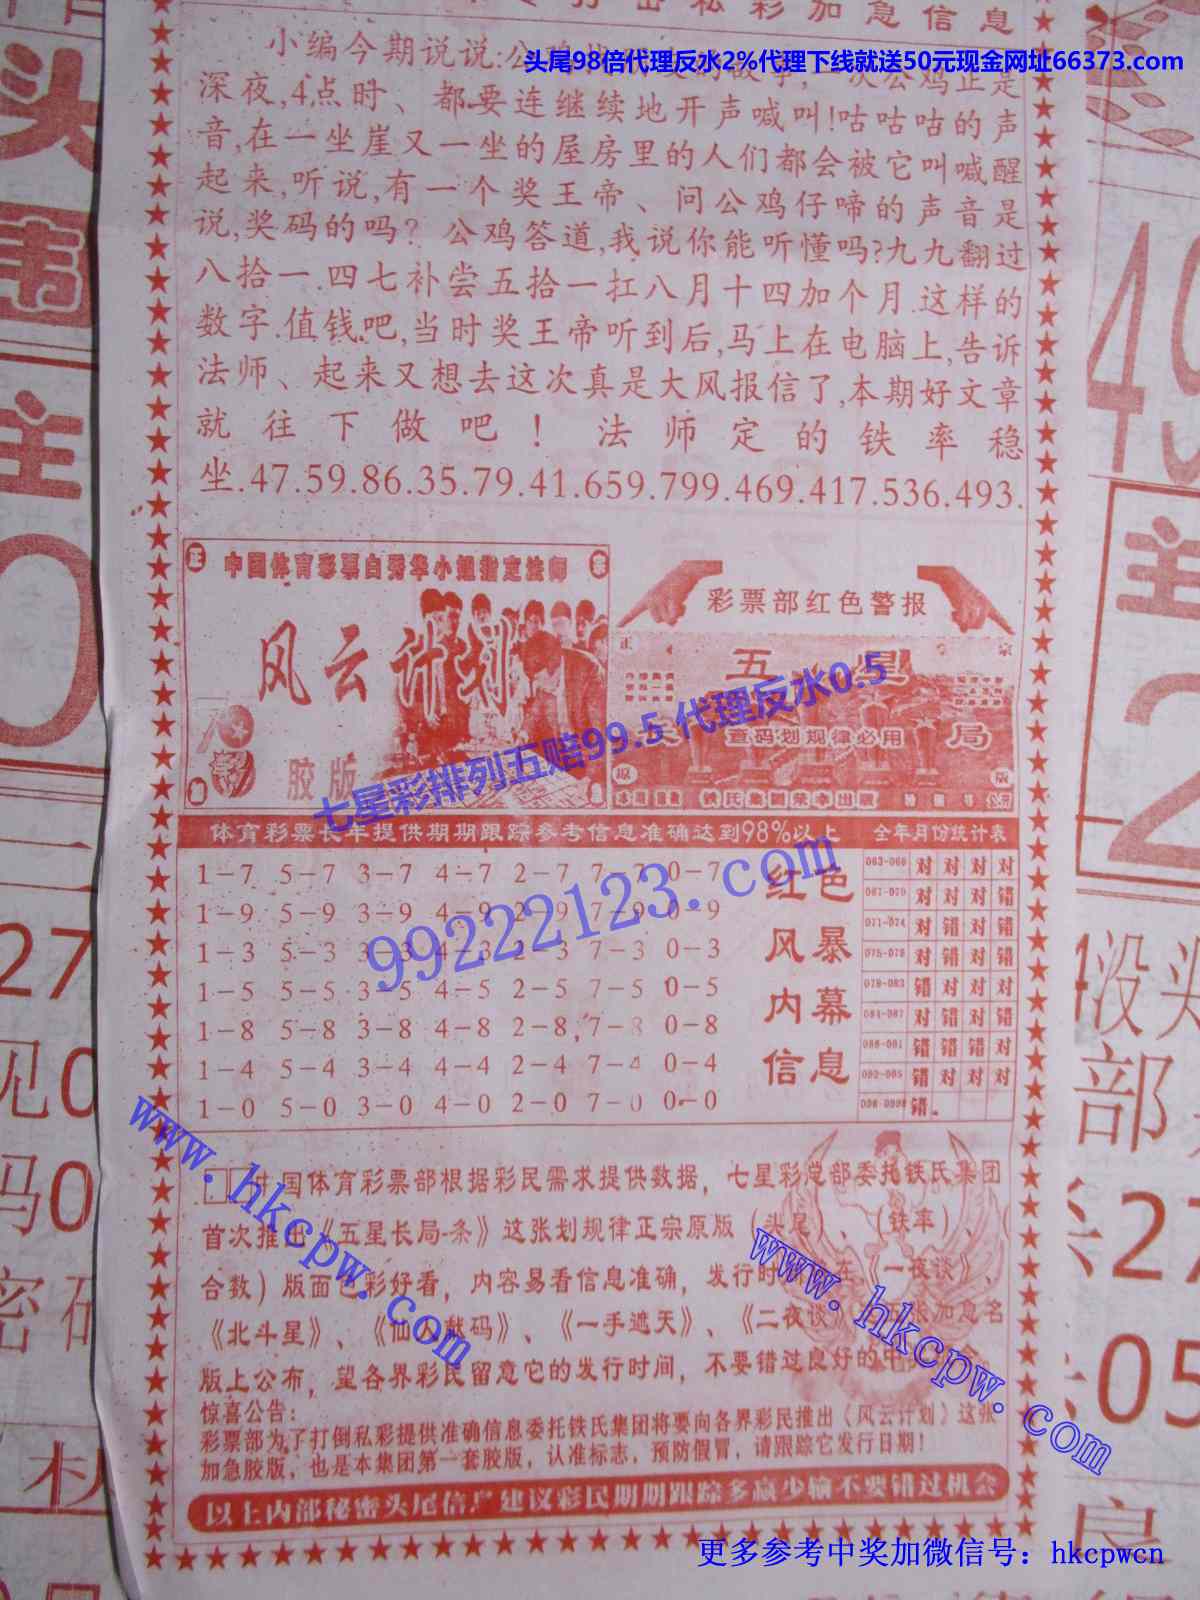 打击私彩加急信息
头尾98倍代理反水2%代理下线就送50元现金网址66373.com
小编今期说说:公鸡
深夜,4点时、都要连继续地开声喊叫!咕咕咕的声
音,在一坐崖又一坐的屋房里的人们都会被它叫喊醒
起来,听说,有一个奖王帝、问公鸡仔啼的声音是
说,奖码的吗?公鸡答道,我说你能听懂吗?九九翻过
八拾一.四七补尝五拾一扛八月十四加个月.这样的
数字.值钱吧,当时奖王帝听到后,马上在电脑上,告诉
法师、起来又想去这次真是大风报信了,本期好文章
就往下做吧!法师定的铁率稳
坐.47.59.86.35.79.41.659.799.469.417.536.493.
正 中国体育彩票白秀华小姐指定法师 宗
风云计划
胶版
彩票部红色警报
正 宗
五 星
长 局
查码划规律必用
原 版
铁氏集团荣幸出版
七星彩排列五赔99.5 代理反水0.5
体育彩票长年提供期期跟踪参考信息准确达到98%以上 全年月份统计表
1-7 5-7 3-7 4-7 2-7 7-7 0-7
1-9 5-9 3-9 4-9 2-9 7-9 0-9
1-3 5-3 3-3 4-3 2-3 7-3 0-3
1-5 5-5 3-5 4-5 2-5 7-5 0-5
1-8 5-8 3-8 4-8 2-8 7-8 0-8
1-4 5-4 3-4 4-4 2-4 7-4 0-4
1-0 5-0 3-0 4-0 2-0 7-0 0-0
红色
风暴
内幕
信息
063-066 对 对 对 对
067-070 对 对 对 错
071-074 对 错 对 错
075-078 对 错 对 错
079-083 错 对 对 对
084-087 对 错 对 错
088-091 错 错 错 对
092-095 错 对 对 对
错
99222123.com
国体育彩票部根据彩民需求提供数据，七星彩总部委托铁氏集团
首次推出《五星长局-条》这张划规律正宗原版（头尾）、（铁率）、
合数）版面色彩好看，内容易看信息准确，发行时《一夜谈》、
《北斗星》、《仙人献码》、《一手遮天》、《二夜谈》加急名
版上公布，望各界彩民留意它的发行时间，不要错过良好的中奖
惊喜公告:
彩票部为了打倒私彩提供准确信息委托铁氏集团将要向各界彩民推出《风云计划》这张
加急胶版，也是本集团第一套胶版，认准标志，预防假冒，请跟踪它发行日期!
以上内部秘密头尾信息建议彩民期期跟踪多赢少输不要错过机会
www.hkcpw.com
www.hkcpw.com
更多参考中奖加微信号: hkcpwcn
头
韦
主
0
二
27
见0
码0
密码
49
主
2
没头
部
27
05
良